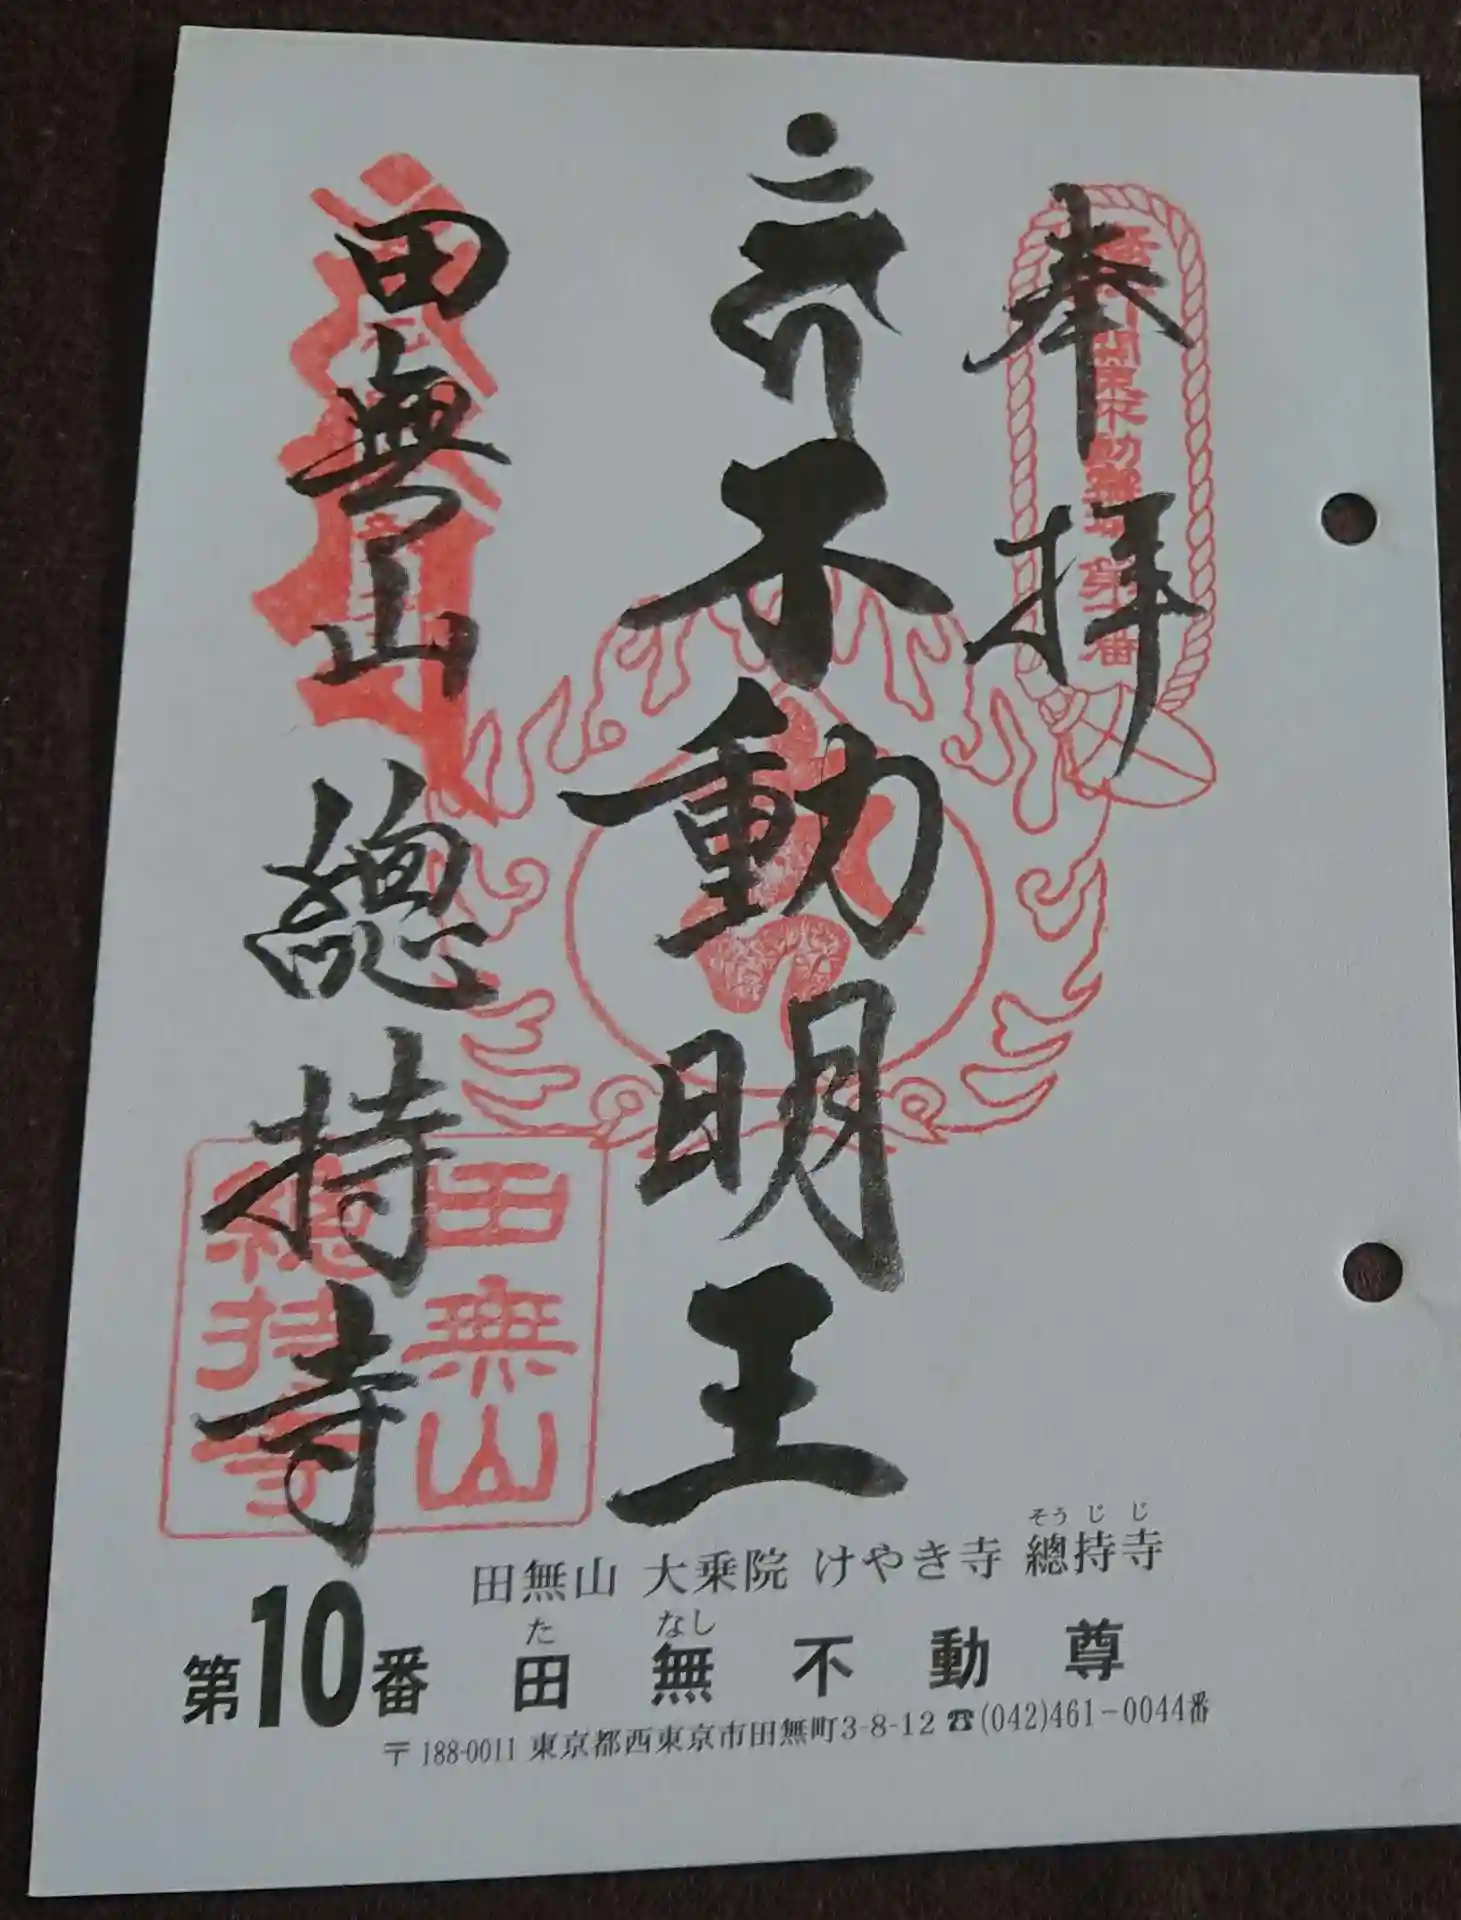 奉拝
不動明王
田無山 總持寺
田無山
總持寺
そうじじ
田無山 大乗院 けやき寺 總持寺
た なし
第10番 田無不動尊
〒188-0011 東京都西東京市田無町3-8-12 ☎(042)461-0044番